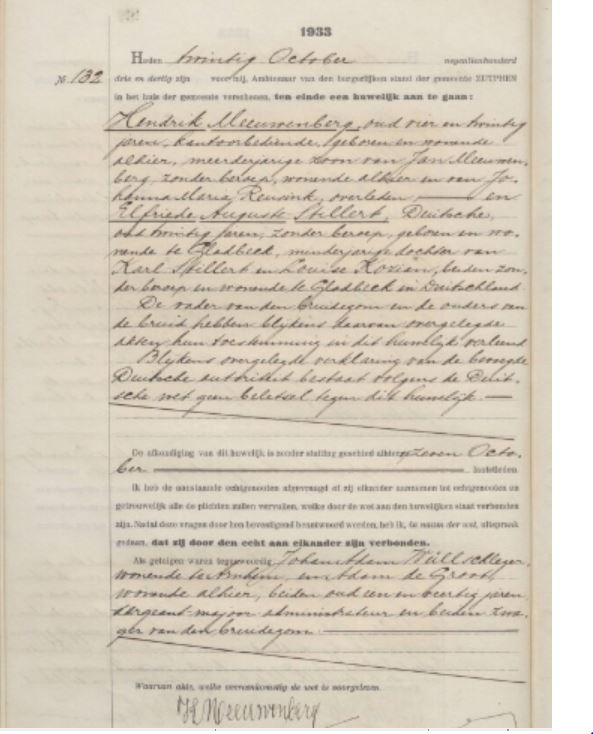 1933
Heden twintig October negentienhonderd
№ 132 drie en dertig zijn voor mij, Ambtenaar van den burgerlijken stand der gemeente ZUTPHEN
in het huis der gemeente verschenen, ten einde een huwelijk aan te gaan:
Hendrik Meeuwenberg, oud vier en twintig
jaren, kantoorbediende, geboren en wonende
alhier, meerderjarige zoon van Jan Meeuwen-
berg, zonder beroep, wonende alhier en van Jo-
hanna Maria Reusink, overleden en
Elfriede Auguste Stillert, Duitsche,
oud twintig jaren, zonder beroep, geboren en wo-
nende te Gladbeck, minderjarige dochter van
Karl Stillert en Louise Kozian, beiden zon-
der beroep en wonende te Gladbeck in Duitschland
De vader van den bruidegom en de ouders van
de bruid hebben blijkens daarvan overgelegde
akten hun toestemming in dit huwelijk verleend
Blijkens overgelegde verklaring van de bevoegde
Duitsche autoriteit bestaat volgens de Duit-
sche wet geen beletsel tegen dit huwelijk.
De afkondiging van dit huwelijk is zonder stuiting geschied alhier zeven Octo-
ber jongstleden
Ik heb de aanstaande echtgenooten afgevraagd of zij elkander aannemen tot echtgenooten en
getrouwelijk alle de plichten zullen vervullen, welke door de wet aan den huwelijken staat verbonden
zijn. Nadat deze vragen door hen bevestigend beantwoord werden, heb ik, in naam der wet, uitspraak
gedaan, dat zij door den echt aan elkander zijn verbonden.
Als getuigen waren tegenwoordig Johan Adam Wüllschleger,
wonende te Arnhem, en Adam de Groot,
wonende alhier, beiden oud een en veertig jaren
sergeant majoor administrateur en beiden zwa-
ger van den bruidegom.
Waarvan akte, welke overeenkomstig de wet is voorgelezen.
H Meeuwenberg